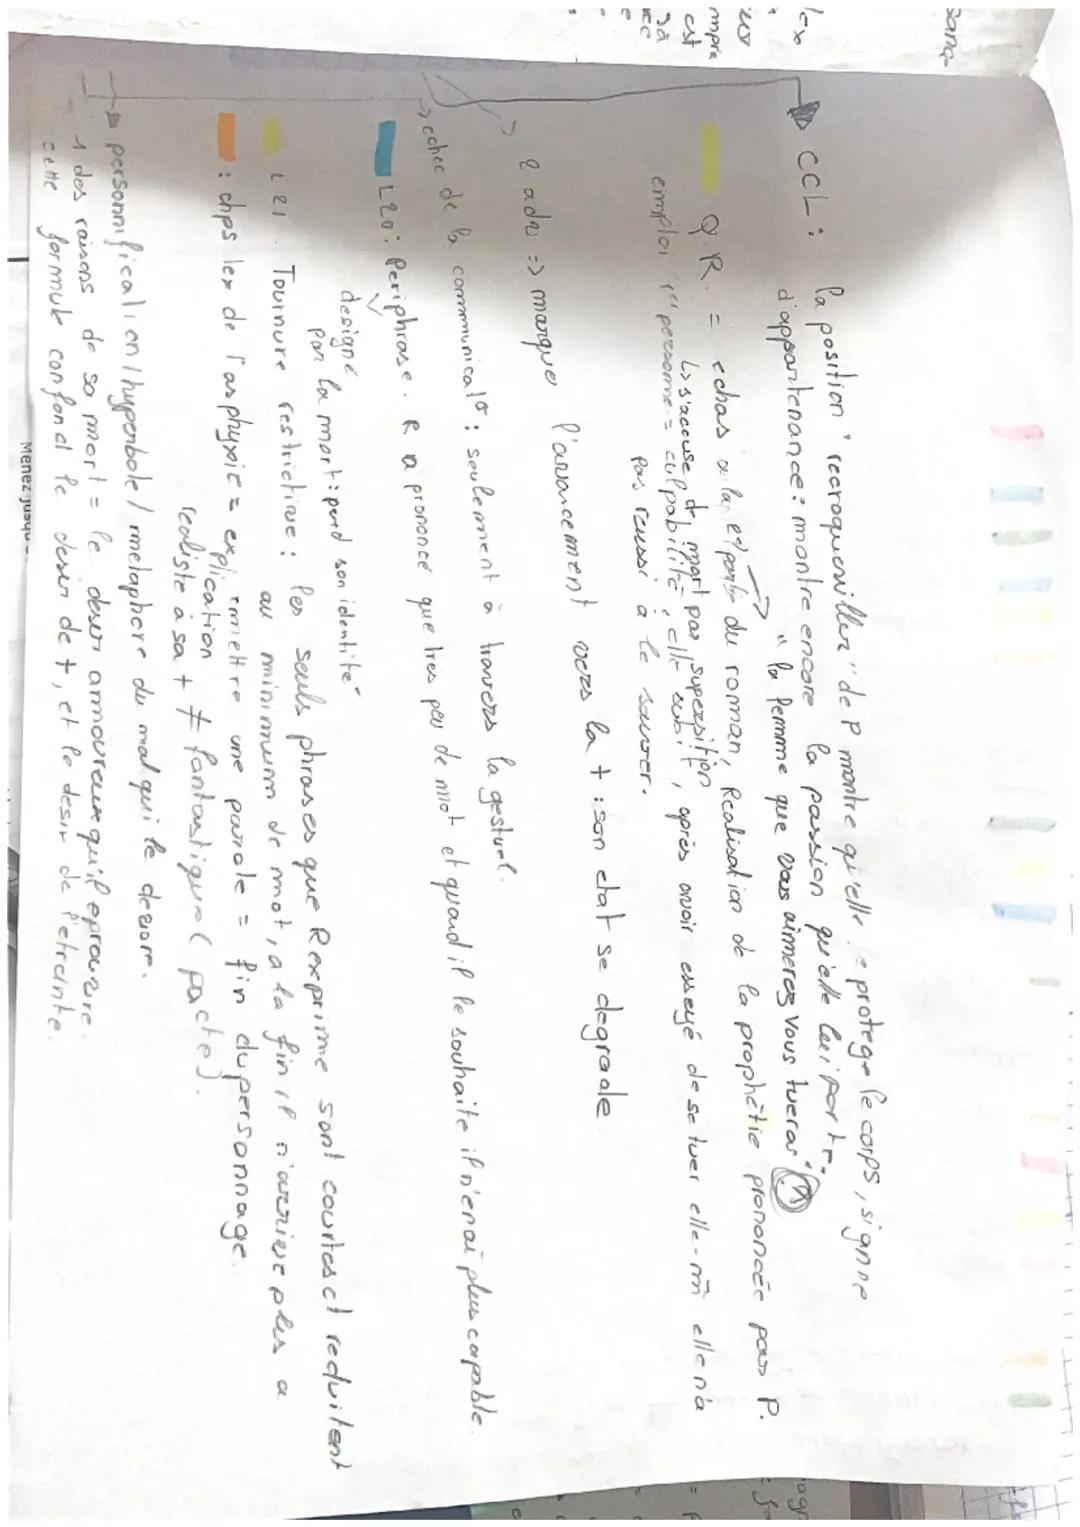 CCL : la position "recroqueviller" de P montre qu'elle protege le corps, signe
d'appartenance : montre encore la passion qu'elle lui porte.
"la femme que vous aimerez vous tueras"
Q.R. = echas du roman, Realisation de la prophétie prononcée par P.
↳ s'accuse d mort par superpition
emploi 1ère personne = culpabilité : elle subit, après avoir essayé de se tuer elle-m̄ elle n'a
pas reussi a le sauver.
2 adv => marque l'avancement vers la + : son etat se degrade
→ echec de la communicat° : seulement à travers la gestuel.
L20 : Periphrase. R a prononcé que très peu de mot et quand il le souhaite il n'en ai plus capable.
designé
par la mort : perd son identité
L 21. Tournure restrictive : les seuls phrases que R exprime sont courtes et reduitent
au minimum de mot, a la fin il n'arrive plus a
emettre une parole = fin du personnage.
: chps lex de l'asphyxie = explication
realiste à sa + ≠ fantastique (pacte).
→ personnification / hyperbole / metaphore du mal qui le devore.
1 des raisons de sa mort = le desir amoureux qu'il eprouve.
cette formule confond le desir de +, et le desir de l'etreinte.
Menez
sang
lex
est